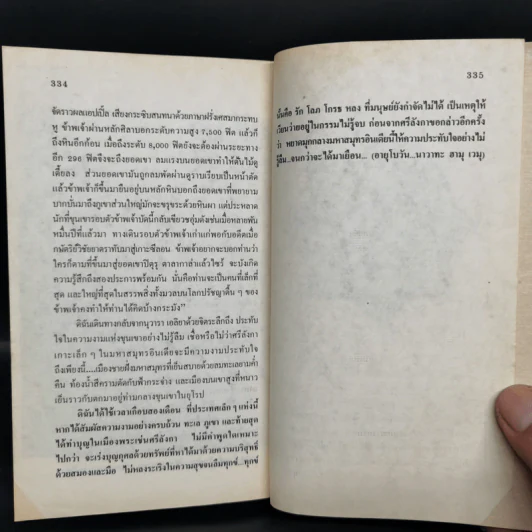 334
จัดราวผลแอปเปิ้ล เสียงกระซิบสนทนาด้วยภาษาฝรั่งเศสมากระทบ
หู ข้าพเจ้าผ่านหลักศิลาบอกระดับความสูง 7,500 ฟิต แล้วก็
ถึงหินอีกก้อน เมื่อถึงระดับ 8,000 ฟิตยังจะต้องผ่านระยะทาง
อีก 296 ฟิตจึงจะถึงยอดเขา ลมแรงบนยอดเขาทำให้ต้นไม้ดู
เตี้ยลง ส่วนยอดเขามันถูกลมพัดผ่านดูราบเรียบเป็นหน้าตัด
แล้วข้าพเจ้าก็ขึ้นมายืนอยู่บนหลักหินบอกถึงยอดเขาที่พยายาม
บากบั่นมาถึงภูเขาส่วนใหญ่มักจะขรุขระด้วยหินผา แต่ประหลาด
นักที่ขุนเขารอบตัวข้าพเจ้าบัดนี้กลับเขียวชอุ่มดังเช่นเมื่อหลายพัน
หมื่นปีที่แล้วมา ทางเดินรอบตัวข้าพเจ้าเก่าแก่พอกับอดีตเมื่อ
กษัตริย์วิชัยยาตราทัพมาสู่เกาะซีลอน ข้าพเจ้าอยากจะบอกท่านว่า
ใครก็ตามที่ขึ้นมาสู่ยอดเขาปิดุรุ ตาลากาล่าแล้วไซร้ จะบังเกิด
ความรู้สึกถึงสองประการพร้อมกัน นั่นคือท่านจะเป็นคนที่เล็กที่
สุด และใหญ่ที่สุดในสรรพสิ่งทั้งมวลบนโลกปรัชญาตื้น ๆ ของ
ข้าพเจ้าคงทำให้ท่านได้คิดบ้างกระมัง"
ดิฉันเดินทางกลับจากนูวารา เอลิยาด้วยจิตระลึกถึง ประทับ
ใจในความงามแห่งขุนเขาอย่างไม่รู้ลืม เชื่อหรือไม่ว่าศรีลังกา
เกาะเล็ก ๆ ในมหาสมุทรอินเดียจะมีความงามประทับใจ
ถึงเพียงนี้....เมืองชายฝั่งมหาสมุทรที่เย็นสบายด้วยลมทะเลยามค่ำ
คืน ท้องน้ำสีครามตัดกับฟ้ากระจ่าง และเมืองบนเขาสูงที่หนาว
เย็นราวกับตกมาอยู่ท่ามกลางขุนเขาในยุโรป
ดิฉันได้ใช้เวลาเกือบสองเดือน ที่ประเทศเล็ก ๆ แห่งนี้
หากได้สัมผัสความงามอย่างครบถ้วน ทะเล ภูเขา และท้ายสุด
ได้ทำบุญในเมืองพระเช่นศรีลังกา ไม่มีคำพูดใดเหมาะ
ไปกว่า จะเร่งบุญกุศลด้วยทรัพย์ที่หาได้มาด้วยความบริสุทธิ์
ด้วยสมองและมือ ไม่หลงระเริงในความสุขจนลืมทุกข์...ทุกข์
335
นั้นคือ รัก โลภ โกรธ หลง ที่มนุษย์ยังกำจัดไม่ได้ เป็นเหตุให้
เวียนว่ายอยู่ในกรรมไม่รู้จบ ก่อนจากศรีลังกาขอกล่าวอีกครั้ง
ว่า หยาดมุกกลางมหาสมุทรอินเดียนี้ให้ความประทับใจอย่างไม่
รู้ลืม...จนกว่าจะได้มาเยือน... (อายุโบวัน...นาวาทะ สามุ เวมุ)